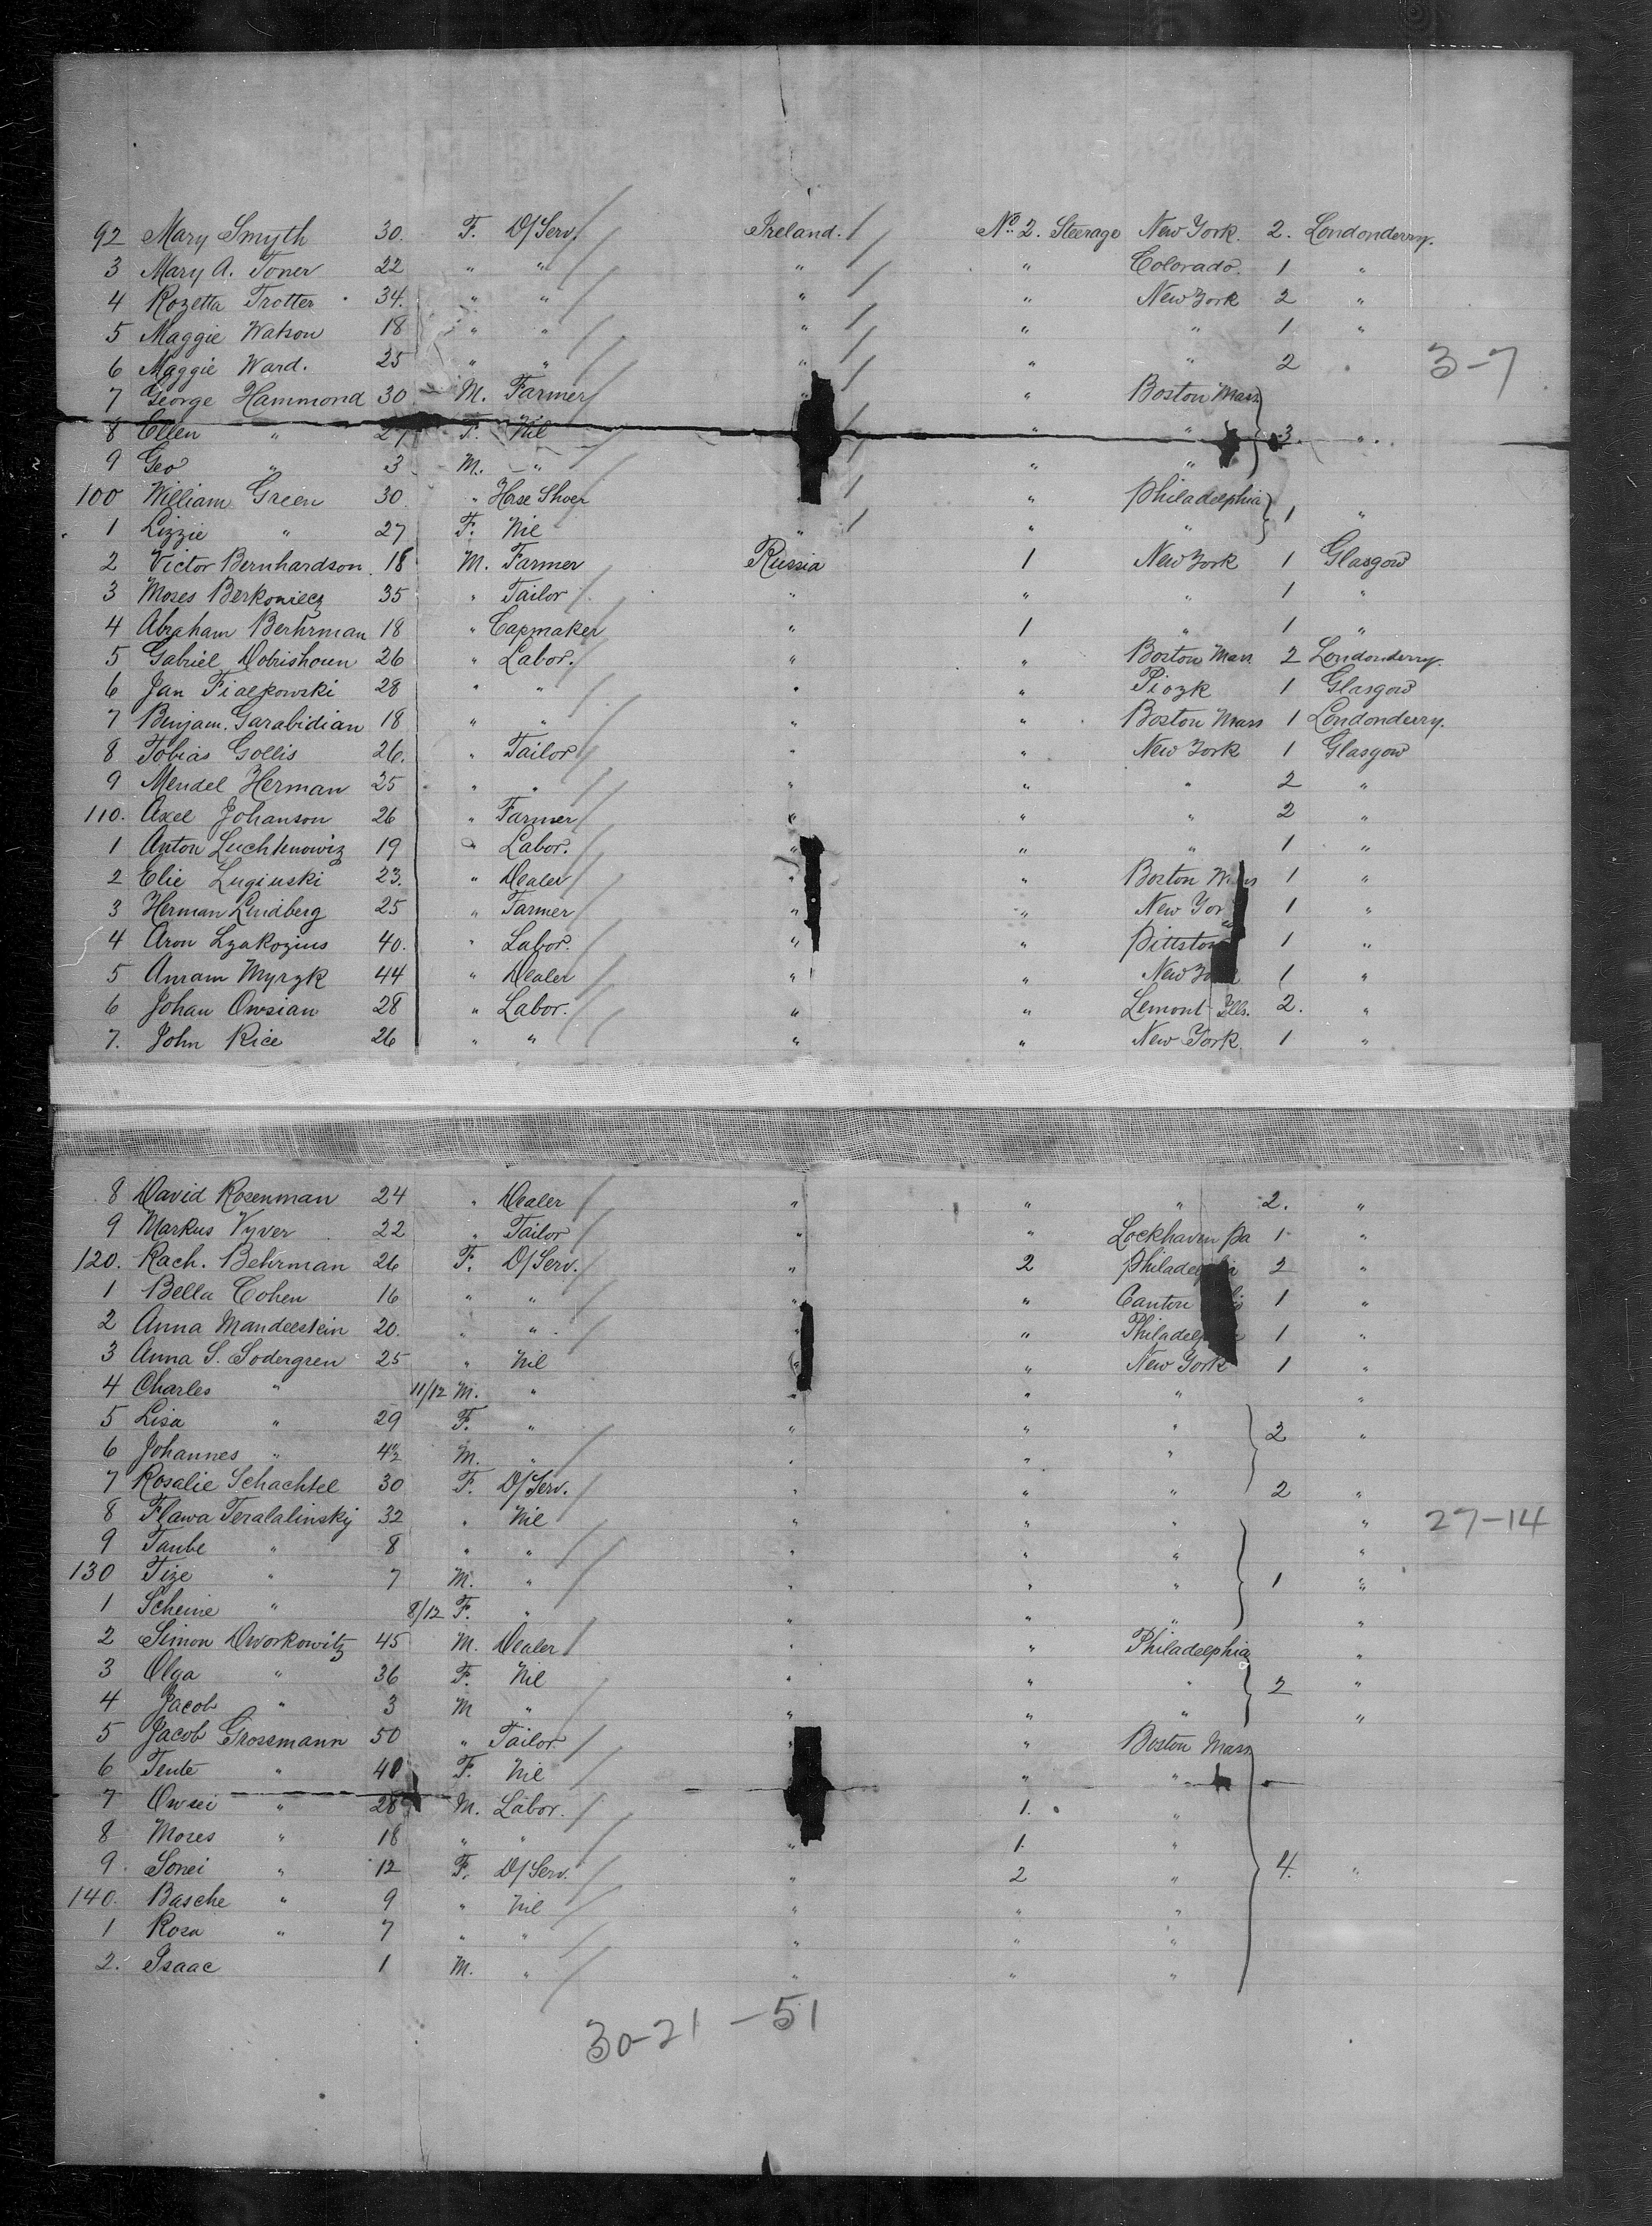 92 Mary Smyth 30. F. D/Serv. Ireland. No. 2. Steerage New York. 2. Londonderry.
3 Mary A. Toner 22 " " " " Colorado. 1 "
4 Rozetta Trotter 34. " " " " New York 2 "
5 Maggie Watson 18 " " " " " 1. "
6 Maggie Ward. 25 " " " " " 2 "
3-7
7 George Hammond 30 M. Farmer " " Boston Mass
8 Ellen " 27 F. Nil " " 3. "
9 Geo " 3 M. " " "
100 William Green 30 " Hose Shoer " Philadelphia 1 "
1 Lizzie " 27 F. Nil " " "
2 Victor Bernhardson 18 M. Farmer Russia 1 New York 1 Glasgow
3 Moses Berkowiecz 35 " Tailor " " " 1 "
4 Abraham Berhrman 18 " Capmaker " 1 " 1 "
5 Gabriel Dobrishoun 26 " Labor. " " Boston Mass 2 Londonderry.
6 Jan Fialkowski 28 " " " " 1 Glasgow
7 Benjam. Garabidian 18 " " " " Boston Mass 1 Londonderry.
8 Tobias Gollis 26. " Tailor " " New York 1 Glasgow
9 Mendel Herman 25 " " " " " 2 "
110. Axel Johanson 26 " Farmer " " " 2 "
1 Anton Luchknowiz 19 " Labor. " " " 1 "
2 Elie Luginski 23. " Dealer " " Boston 1 "
3 Herman Lindberg 25 " Farmer " " New Yor 1 "
4 Aron Lzakozius 40. " Labor. " " Pittston 1 "
5 Anram Myrzk 44 " Dealer " " New Yo 1 "
6 Johan Owsian 28 " Labor. " " Lemont Ills. 2. "
7. John Rice 26 " " " " New York. 1 "
8 David Rosenman 24 " Dealer " " " 2. "
9 Markus Vyver 22 " Tailor " " Lockhaven Pa 1 "
120. Rach. Behrman 26 F. D/Serv. " 2 Philadelphia 2 "
1 Bella Cohen 16 " " " " Canton 1 "
2 Anna Mandelstein 20. " " " " Philadelphia 1 "
3 Anna S. Sodergren 25 " Nil " " New York 1 "
4 Charles " 11/12 M. " " " " "
5 Lisa " 29 F. " " " " 2 "
6 Johannes " M. " " " "
7 Rosalie Schachtel 30 F. D/Serv. " " " 2 "
8 Flawa Teralalinskij 32 " Nil " " " "
27-14
9 Taube " 8 " " " " " "
130 Tize " 7 M. " " " " 1 "
1 Scheine " 8/12 F. " " " " "
2 Simon Dworkowitz 45 M. Dealer " " Philadelphia "
3 Olga " 36 F. Nil " " " 2 "
4 Jacob " 3 M " " " " "
5 Jacob Grossmann 50 " Tailor " " Boston Mass
6 Tente " 40 F. Nil " "
7 Owsei " 28 M. Labor. 1. "
8 Moses " 18 " " " 1. "
9. Sonei " 12 F. D/Serv. " 2 " 4. "
140. Basche " 9 " Nil " " "
1 Rosa " 7 " " " " "
2. Isaac 1 M. " " " "
30-21-51